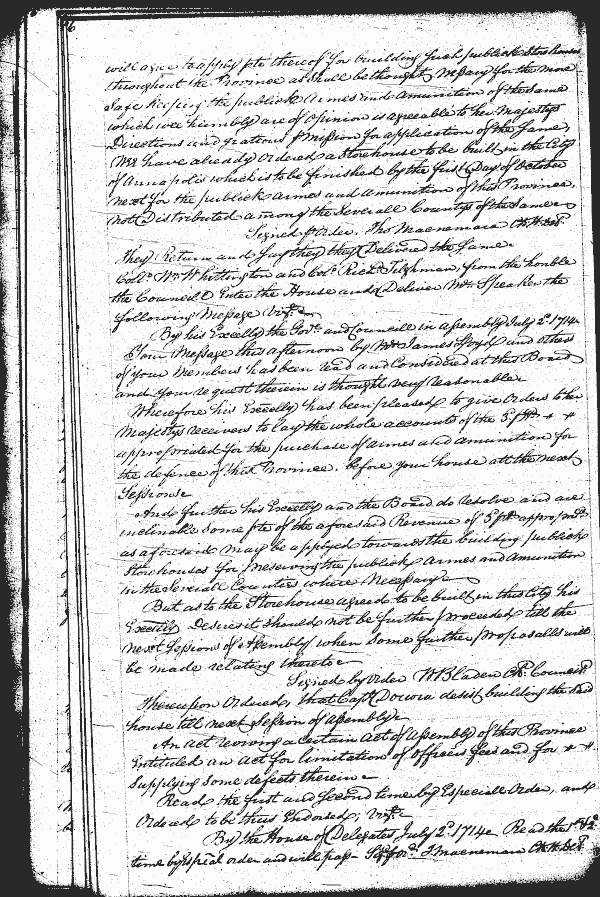 will agree to apply pte thereof for building such publick Storehouses
throughout the Province as shall be thought necessary for the more
safe keeping the publick Armes and Amunition of the same
which wee humbly are of Opinion is agreeable to her Majestys
Directions and gratious pmission for application of the same,
We have already Ordered a Storehouse to be built in the City
of Annapolis which is to be finished by the first Day of October
next for the publick armes and amunition of this Province,
not Distributed among the severall Countys of the same
Signed p Order, Tho Macnemara Cl. H. Del.
they Return and say they Delivered the same
Collo. Wm. Whittington and Colo. Richd. Tilghman, from the honble
the Councill Enter the House and Deliver Mr. Speaker the
following Message Vizt.
By his Excelly the Govr. and Councill in assembly July 2d. 1714
Your Message this afternoon by Mr. James Lloyd and others
of your Members has been read and Considered at this Board
and your request therein is thought very reasonable
Wherefore his Excelly has been pleased to give Orders to her
Majestys receivers to lay the whole accounts of the 3d.
appropriated for the purchase of armes and amunition for
the defence of this Province, before your house att the next
Sessions
And further his Excelly and the Board do resolve and are
inclinable some pte of the aforesaid Revenue of 3d.
as aforesaid may be applyed towards the building publick
Storehouses for preserving the publick armes and Amunition
in the Severall Counties where Necessary
But as to the Storehouse agreed to be built in this City his
Excelly Desires it should not be further proceeded till the
next Sessions of Assembly when some further proposalls will
be made relating thereto
Signed by order W Bladen Cl. Councill
Thereupon Ordered, that Capt. desist building the said
house till next Session of Assembly
An Act reviving a certain Act of Assembly of this Province
Entituled an Act for limitation of officers fees and for
supplying some defects therein
Read the first and second time by Especiall Order, and
Ordered to be thus Endorsed; Vizt.
By the House of Delegates July 2d. 1714 Read the 1st. & 2d.
time by Espiall order and will pass Macnemara Cl. H. Del.